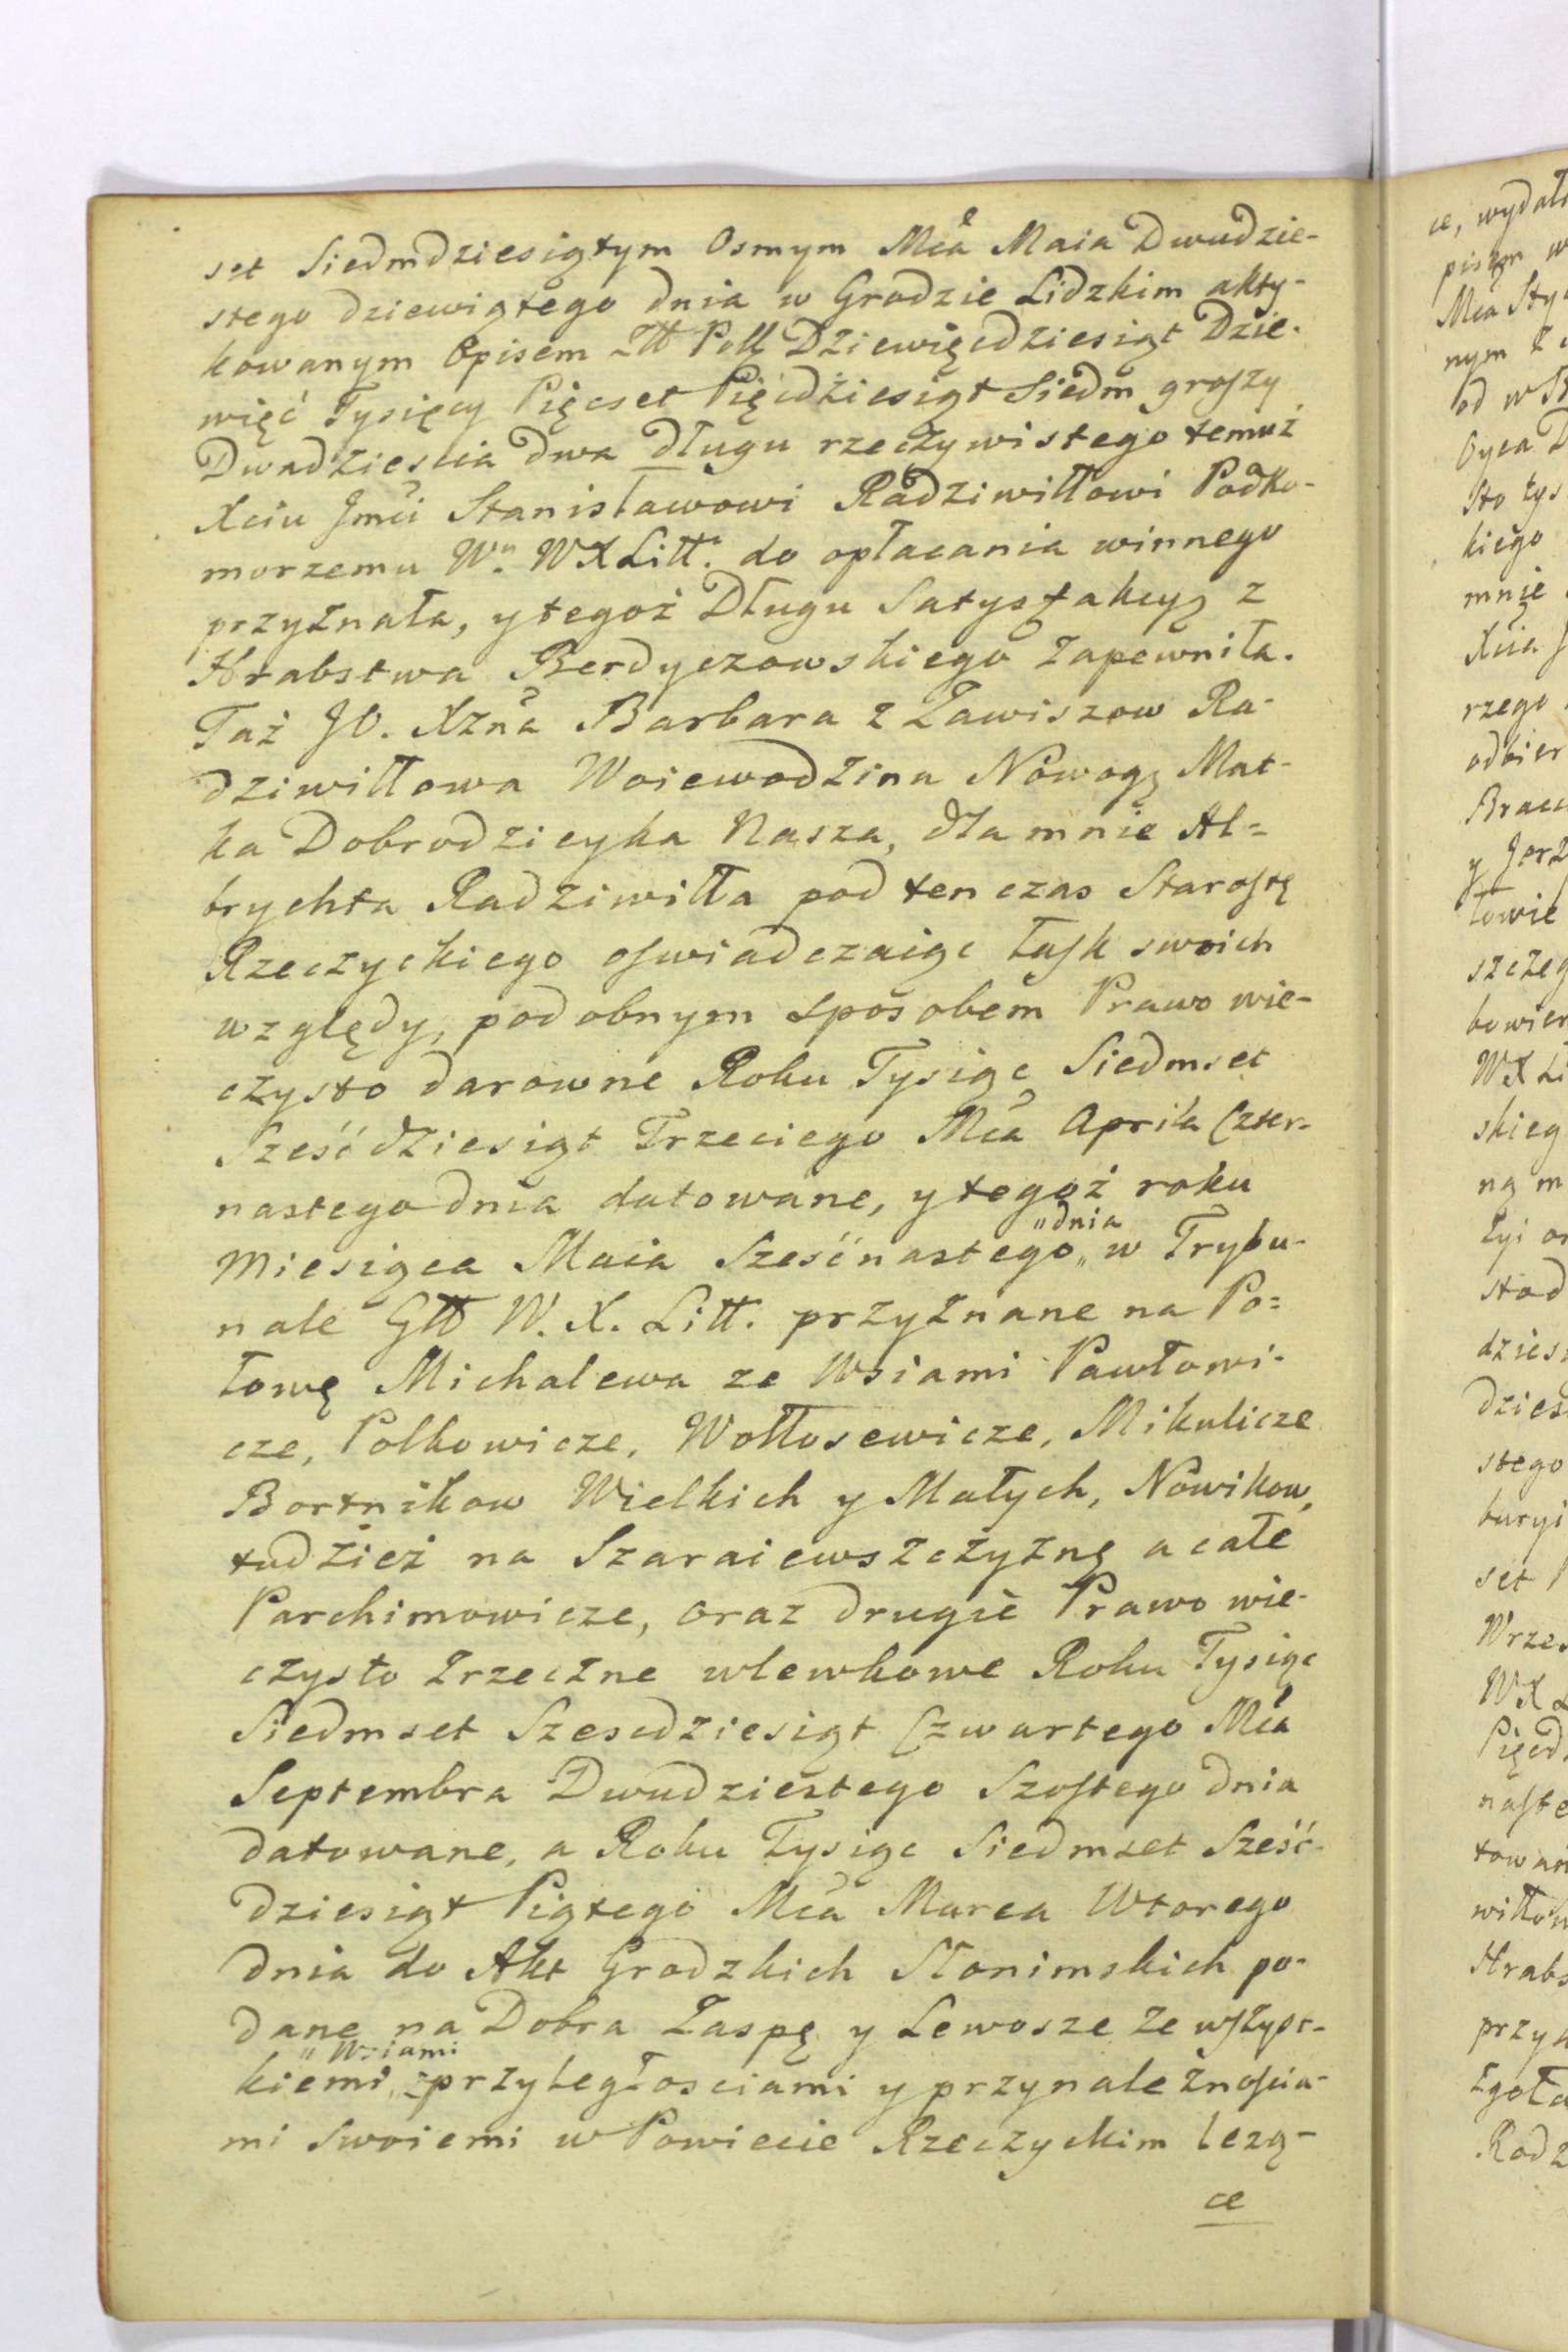 set Siedmdziesiątym Osmym Mca Maia Dwudzie-
stego dziewiątego dnia w Grodzie Lidzkim akty-
kowanym Opisem Złł Poll Dziewięcdziesiąt Dzie-
więć Tysięcy Pięcset Pięcdziesiąt Siedm groszy
Dwadziescia dwa długu rzeczywistego temuż
Xciu Jmci Stanisławowi Radziwiłłowi Podko-
morzemu Wu. WXLitt. do opłacania winnego
przyznała, y tegoż Długu Satysfakcyą z
Hrabstwa Berdyczowskiego zapewniła.
Taż JO. XZna Barbara z Zawiszow Ra-
dziwiłłowa Woiewodzina Nowogg Mat-
ka Dobrodzieyka Nasza, dla mnie Al=
brychta Radziwiłła pod ten czas Starostę
Rzeczyckiego oswiadczaiąc łask swoich
względy, podobnym sposobem Prawo wie-
czysto darowne Roku Tysiąc Siedmset
Sześćdziesiąt Trzeciego Mca Aprila Czter-
nastego dnia datowane, y tegoż roku
Miesiąca Maia Sześćnastego „dnia„ w Trybu-
nale Głł W. X. Litt. przyznane na Po=
łowę Michalewa ze Wsiami Pawłowi-
cze, Polkowicze, Wołłosewicze, Mikulicze
Bortnikow Wielkich y Małych, Nowikow,
tudzież na Szaraiewszczyznę a całe
Parchimowicze, oraz drugie Prawo wie-
czysto zrzeczne wlewkowe Roku Tysiąc
Siedmset Szescdziesiąt Czwartego Mca
Septembra Dwudziestego Szostego dnia
datowane, a Roku Tysiąc Siedmset Sześć-
dziesiąt Piątego Mca Marca Wtorego
dnia do Akt Grodzkich Słonimskich po-
dane na Dobra Zaspę y Lewosze ze wszyst-
kiemi „Wsiami„ przyległosciami y przynależnoscia-
mi swoiemi w Powiecie Rzeczyckim lezą-
ce